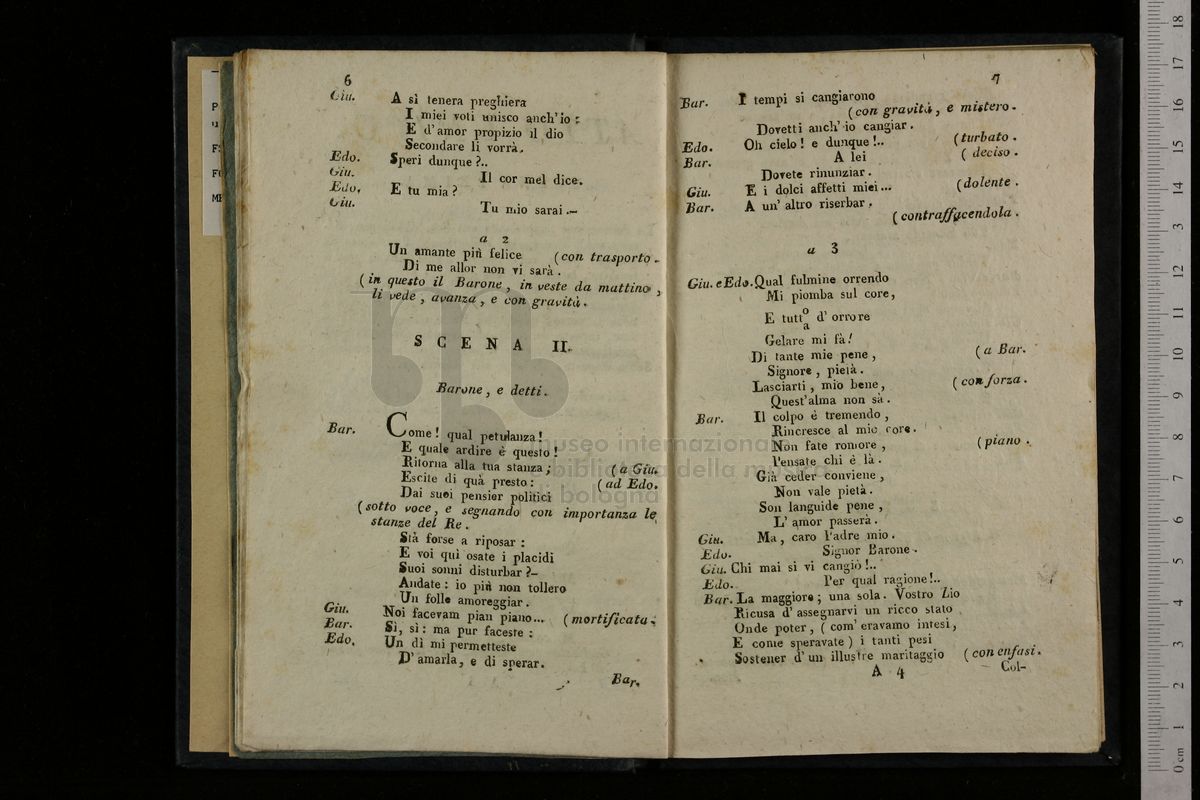 6
Giu. A sì tenera preghiera
I miei voti unisco anch'io:
E d'amor propizio il dio
Secondare li vorrà.
Edo. Speri dunque?..
Giu. Il cor mel dice.
Edo. E tu mia?
Giu. Tu mio sarai.—
a 2
Un amante più felice (con trasporto.
Di me allor non vi sarà.
(in questo il Barone, in veste da mattino,
li vede, avanza, e con gravità.
SCENA II.
Barone, e detti.
Bar. Come! qual petulanza!
E quale ardire è questo!
Ritorna alla tua stanza; (a Giu.
Escite di quà presto: (ad Edo.
Dai suoi pensier politici
(sotto voce, e segnando con importanza le
stanze del Re.
Stà forse a riposar:
E voi quì osate i placidi
Suoi sonni disturbar?—
Andate: io più non tollero
Un folle amoreggiar.
Giu. Noi facevam pian piano... (mortificata.
Bar. Sì, sì: ma pur faceste:
Edo. Un dì mi permetteste
D'amarla, e di sperar.
Bar.
7
Bar. I tempi si cangiarono
(con gravità, e mistero.
Dovetti anch'io cangiar.
Edo. Oh cielo! e dunque!.. (turbato.
Bar. A lei (deciso.
Dovete rinunziar.
Giu. E i dolci affetti miei... (dolente.
Bar. A un'altro riserbar.
(contraffacendola.
a 3
Giu. e Edo. Qual fulmine orrendo
Mi piomba sul core,
E tutt o/a d'orrore
Gelare mi fà!
Di tante mie pene, (a Bar.
Signore, pietà.
Lasciarti, mio bene, (con forza.
Quest'alma non sà.
Bar. Il colpo è tremendo,
Rincresce al mio core.
Non fate romore, (piano.
Pensate chi è là.
Già ceder conviene,
Non vale pietà.
Son languide pene,
L'amor passerà.
Giu. Ma, caro Padre mio.
Edo. Signor Barone.
Giu. Chi mai si vi cangiò!..
Edo. Per qual ragione!..
Bar. La maggiore; una sola. Vostro Zio
Ricusa d'assegnarvi un ricco stato
Onde poter, (com'eravamo intesi,
E come speravate) i tanti pesi
Sostener d'un illustre maritaggio (con enfasi.
A 4 Col-
museo internazionale
e biblioteca della musica
di bologna
0 cm 1 2 3 4 5 6 7 8 9 10 11 12 13 14 15 16 17 18